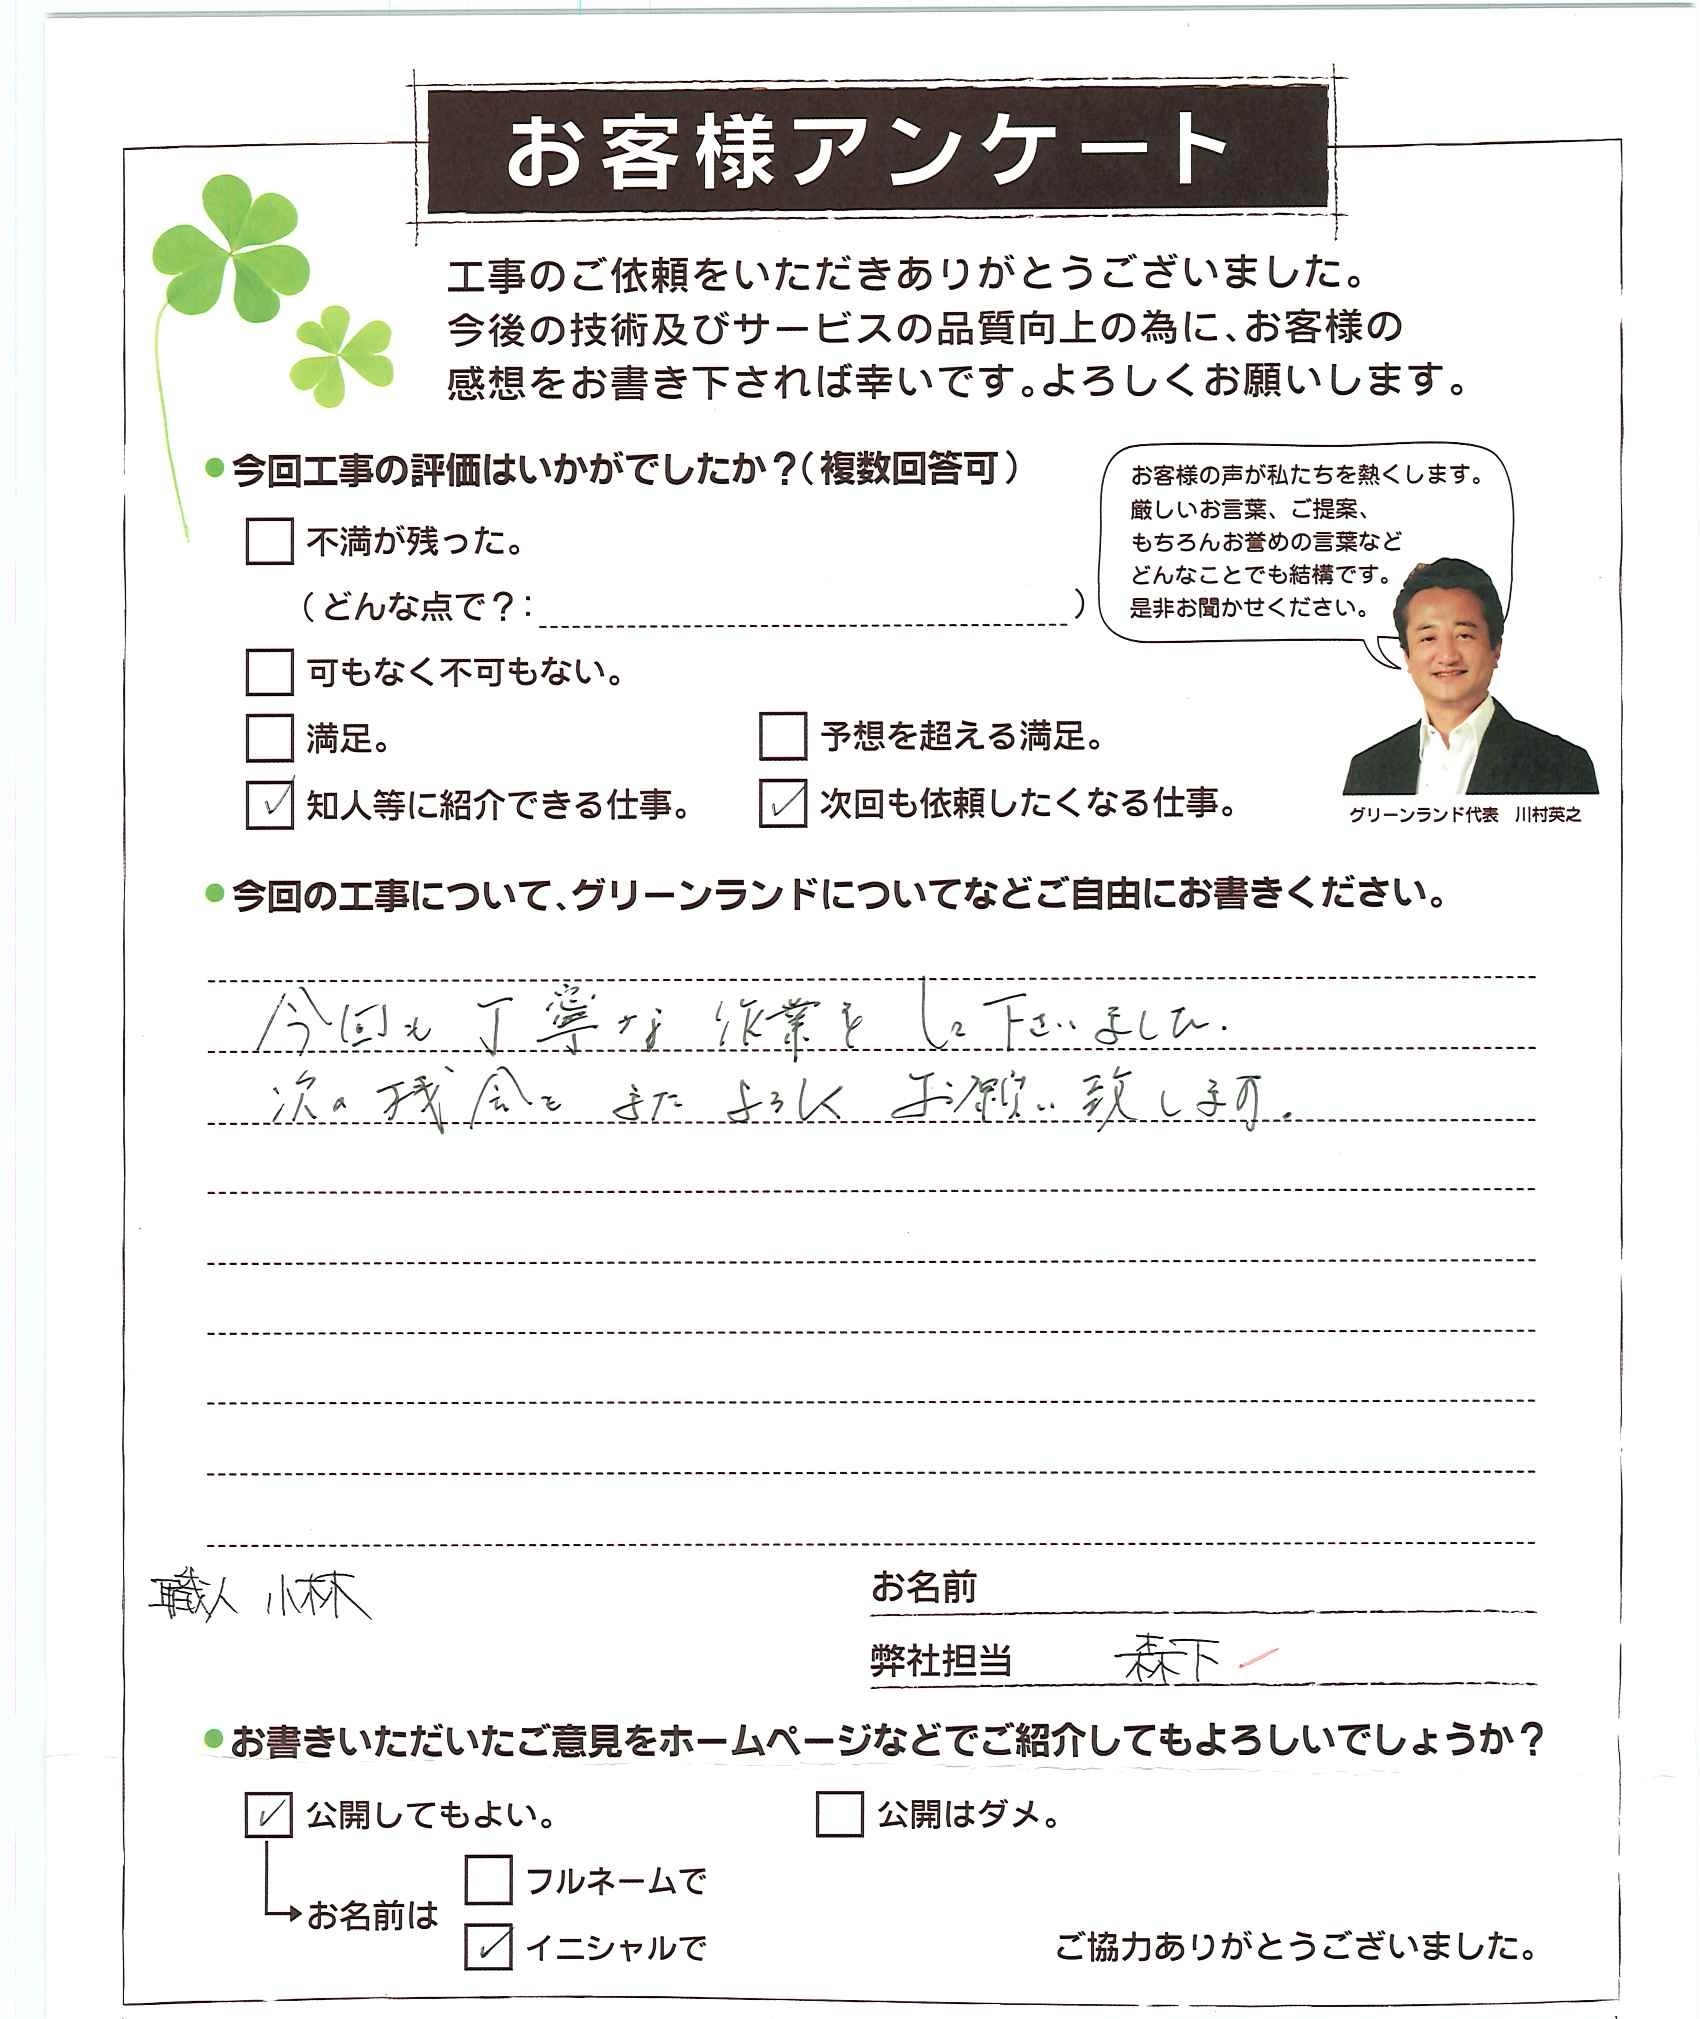 お客様アンケート
工事のご依頼をいただきありがとうございました。
今後の技術及びサービスの品質向上の為に、お客様の
感想をお書き下されば幸いです。よろしくお願いします。
今回工事の評価はいかがでしたか？（複数回答可）
お客様の声が私たちを熱くします。
厳しいお言葉、ご提案、
もちろんお誉めの言葉など
どんなことでも結構です。
是非お聞かせください。
不満が残った。
（どんな点で？： ）
可もなく不可もない。
満足。
予想を超える満足。
知人等に紹介できる仕事。
次回も依頼したくなる仕事。
グリーンランド代表 川村英之
今回の工事について、グリーンランドについてなどご自由にお書きください。
今回も丁寧な作業をして下さいました。
次の機会もまたよろしくお願い致します。
職人 小林
お名前
弊社担当 森下
お書きいただいたご意見をホームページなどでご紹介してもよろしいでしょうか？
公開してもよい。
公開はダメ。
お名前は
フルネームで
イニシャルで
ご協力ありがとうございました。